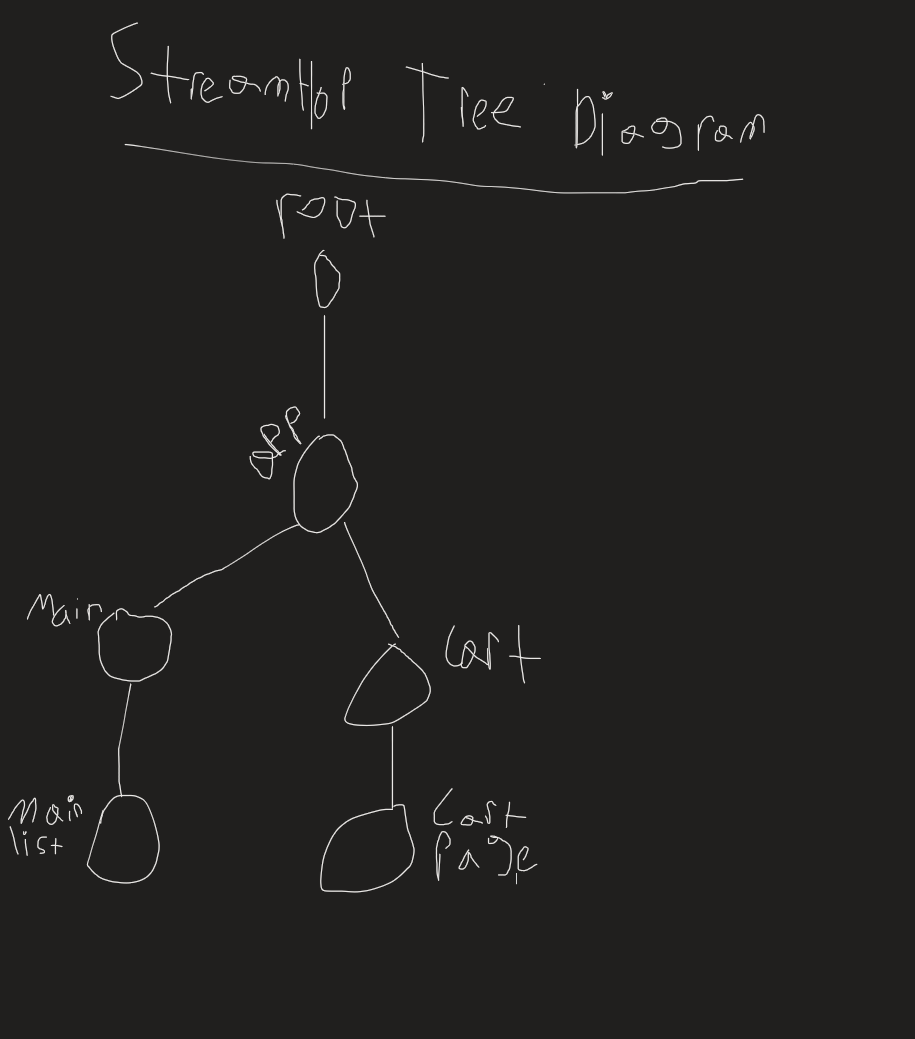 StreamHop Tree Diagram
root
app
Main
Cart
Main
list
Cart
Page